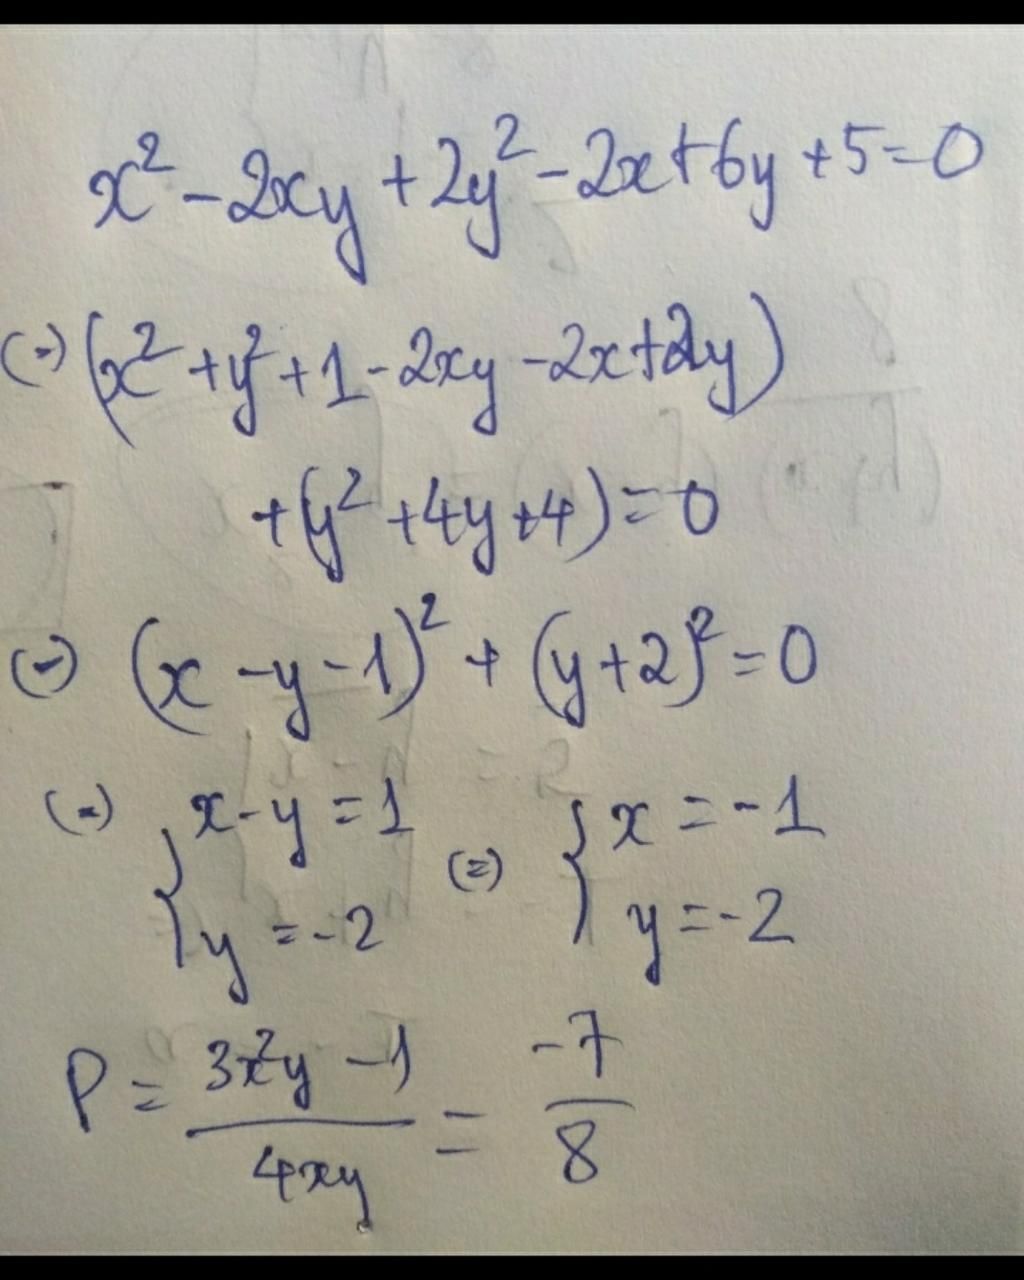 x² - 2xy + 2y² - 2x + 6y + 5 = 0
(=) (x² + y² + 1 - 2xy - 2x + 2y)
+ (y² + 4y + 4) = 0
(=) (x - y - 1)² + (y + 2)² = 0
(=) { x - y = 1 (=) { x = -1
y = -2 y = -2
P = (3x²y - 1) / (4xy) = -7/8